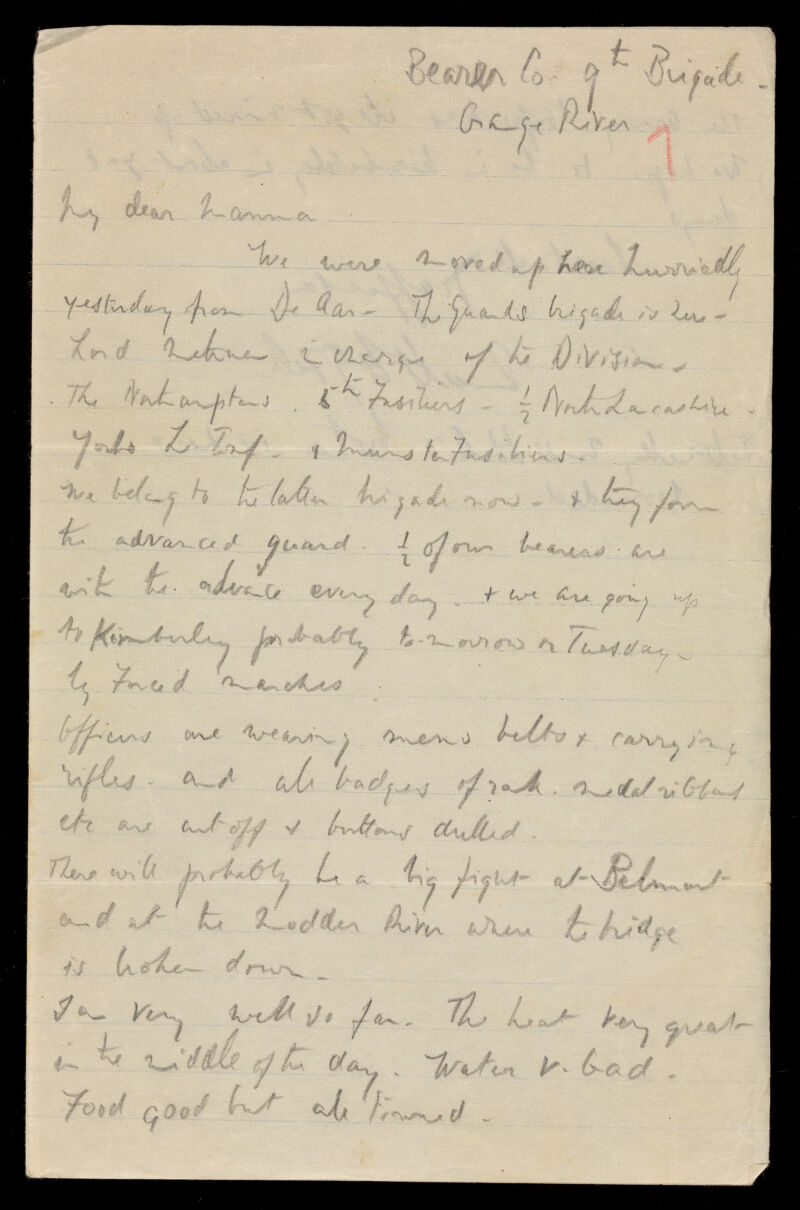 Bearer Co. 9th Brigade -
Orange River
1
My dear Mamma
We were moved up here hurriedly
yesterday from De Aar - The Guards brigade is here -
Lord Methuen in charge of the Division -
The Northamptons. 5th Fusiliers - ½ North Lancashire -
Yorks Lt Inf - & Munster Fusiliers -
We belong to the latter brigade now - & they form
the advanced guard. ½ of our bearers are
with the advance every day. & we are going up
to Kimberley probably to-morrow or Tuesday -
by Forced marches.
Officers are wearing mens belts & carrying
rifles - and all badges of rank. medal ribbons
etc are cut off & buttons dulled -
There will probably be a big fight at Belmont
and at the Modder River where the bridge
is broken down -
I am very well so far - The heat very great
in the middle of the day. Water v. bad -
Food good but all tinned -